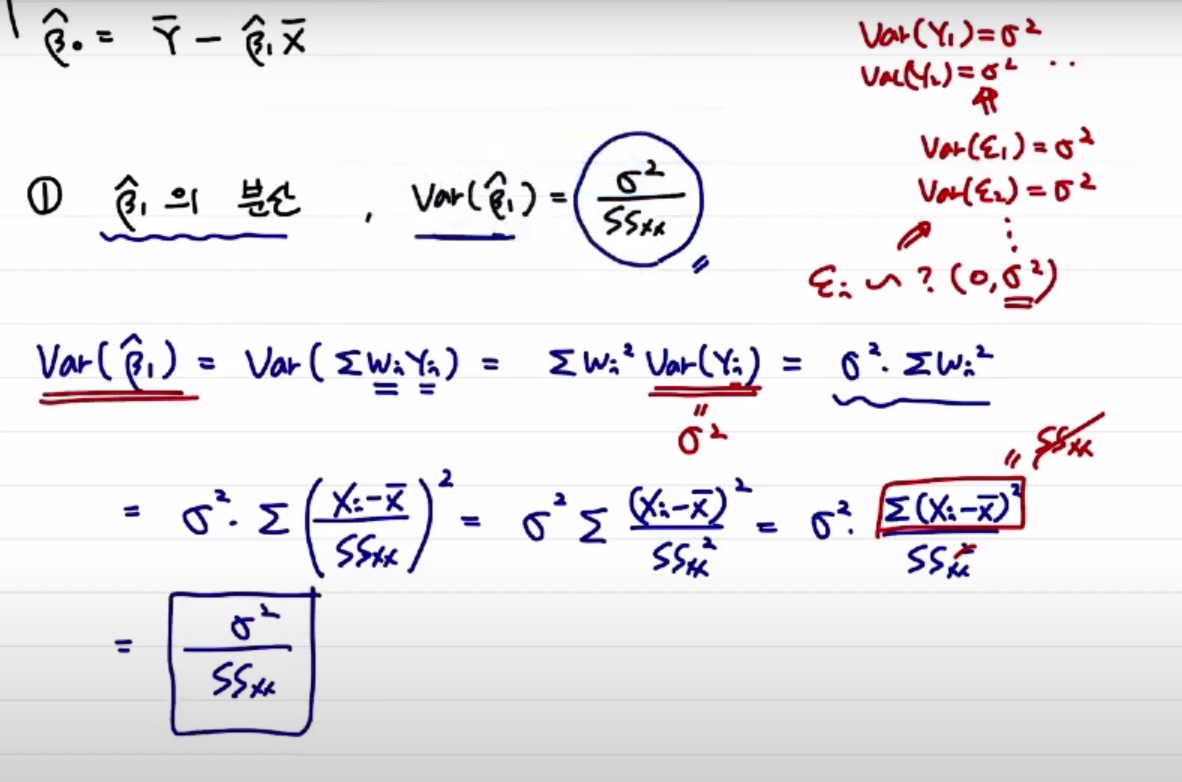 β̂₀ = Ȳ - β̂₁X̄
Var(Y₁)=σ²
Var(Y₂)=σ² ..
⇑
Var(ε₁)=σ²
Var(ε₂)=σ²
⋮
εᵢ ~ ? (0, σ²)
① β̂₁의 분산, Var(β̂₁) = σ²/SSxx
Var(β̂₁) = Var(ΣWᵢYᵢ) = ΣWᵢ² Var(Yᵢ) = σ²·ΣWᵢ²
" σ²
= σ²·Σ((Xᵢ-X̄)/SSxx)² = σ²Σ (Xᵢ-X̄)²/SSxx² = σ²· Σ(Xᵢ-X̄)²/SSxx² " SSxx
= σ²/SSxx